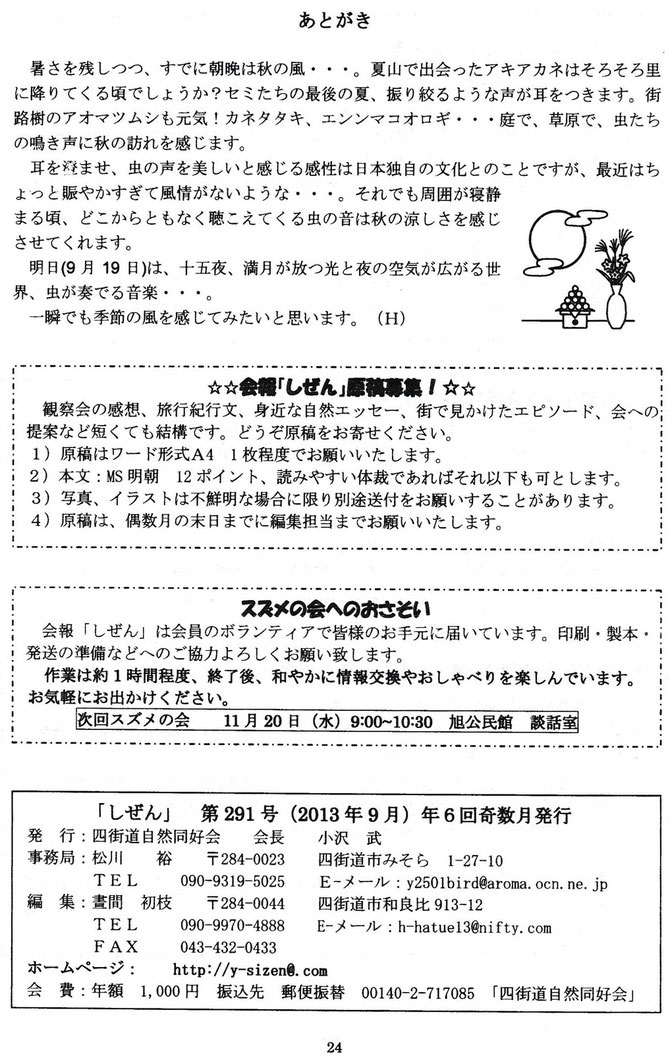 あとがき
暑さを残しつつ、すでに朝晩は秋の風・・・。夏山で出会ったアキアカネはそろそろ里
に降りてくる頃でしょうか?セミたちの最後の夏、振り絞るような声が耳をつきます。街
路樹のアオマツムシも元気!カネタタキ、エンンマコオロギ・・・庭で、草原で、虫たち
の鳴き声に秋の訪れを感じます。
耳を澄ませ、虫の声を美しいと感じる感性は日本独自の文化とのことですが、最近はち
ょっと賑やかすぎて風情がないような・・・。それでも周囲が寝静
まる頃、どこからともなく聴こえてくる虫の音は秋の涼しさを感じ
させてくれます。
明日(9月19日)は、十五夜、満月が放つ光と夜の空気が広がる世
界、虫が奏でる音楽・・・。
一瞬でも季節の風を感じてみたいと思います。(H)
☆☆会報「しぜん」原稿募集!☆☆
観察会の感想、旅行紀行文、身近な自然エッセー、街で見かけたエピソード、会への
提案など短くても結構です。どうぞ原稿をお寄せください。
1)原稿はワード形式A4 1枚程度でお願いいたします。
2)本文:MS明朝 12ポイント、読みやすい体裁であればそれ以下も可とします。
3)写真、イラストは不鮮明な場合に限り別途送付をお願いすることがあります。
4)原稿は、偶数月の末日までに編集担当までお願いいたします。
スズメの会へのおさそい
会報「しぜん」は会員のボランティアで皆様のお手元に届いています。印刷・製本・
発送の準備などへのご協力よろしくお願い致します。
作業は約1時間程度、終了後、和やかに情報交換やおしゃべりを楽しんでいます。
お気軽にお出かけください。
次回スズメの会 11月20日(水)9:00~10:30 旭公民館 談話室
「しぜん」 第291号(2013年9月)年6回奇数月発行
発 行:四街道自然同好会 会長 小沢 武
事務局:松川 裕 〒284-0023 四街道市みそら 1-27-10
TEL 090-9319-5025 E-メール:y2501bird@aroma.ocn.ne.jp
編 集:晝間 初枝 〒284-0044 四街道市和良比913-12
TEL 090-9970-4888 E-メール:h-hatue13@nifty.com
FAX 043-432-0433
ホームページ: http://y-sizen@.com
会 費:年額 1,000円 振込先 郵便振替 00140-2-717085 「四街道自然同好会」
24